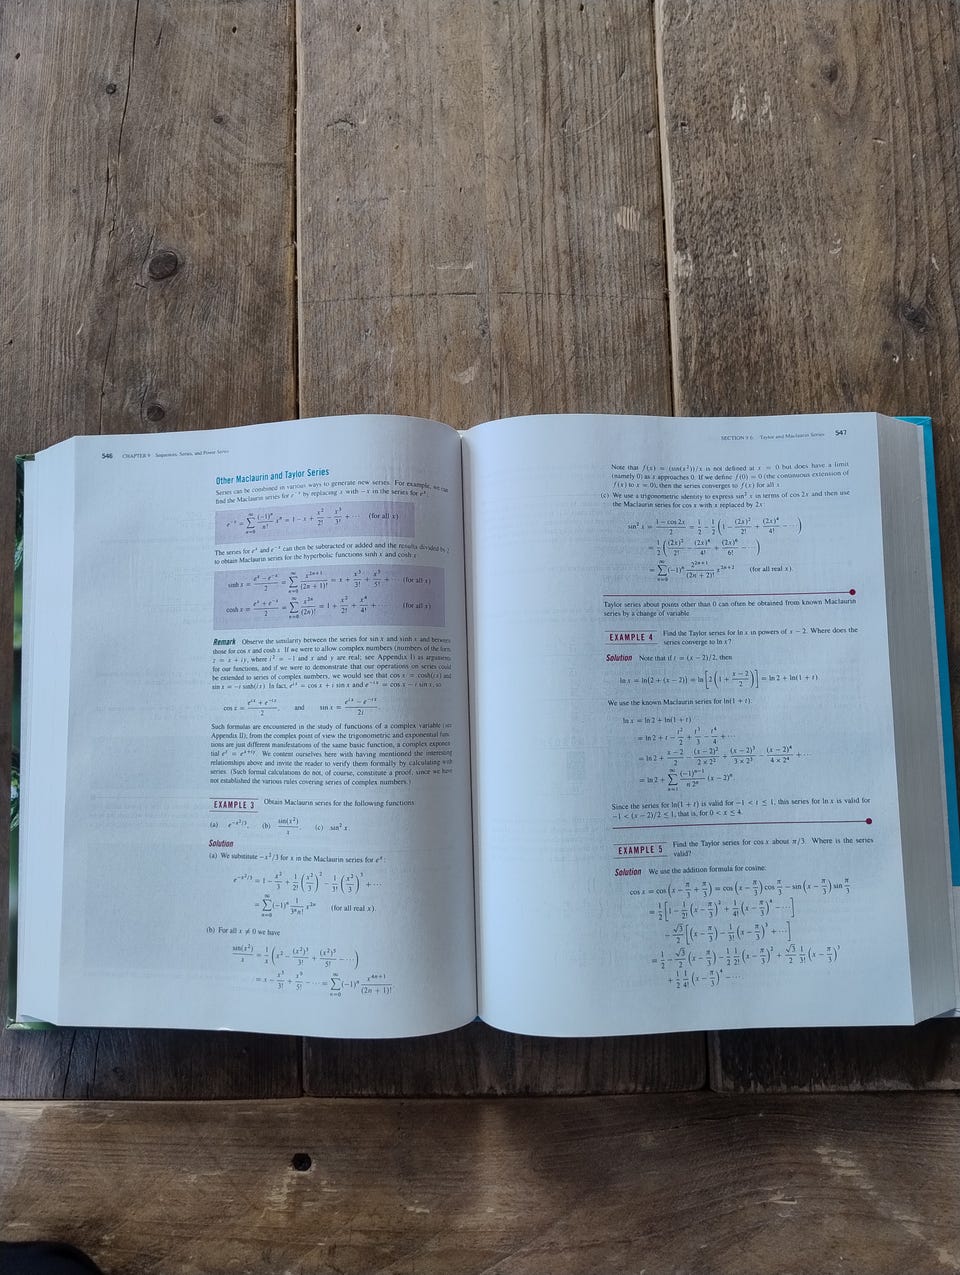 546 CHAPTER 9 Sequences, Series, and Power Series
Other Maclaurin and Taylor Series
Series can be combined in various ways to generate new series. For example, we can
find the Maclaurin series for e^{-x} by replacing x with −x in the series for e^x:
e^{-x} = ∑_{n=0}^{∞} (−1)^n/n! x^n = 1 − x + x^2/2! − x^3/3! + ··· (for all x)
The series for e^x and e^{-x} can then be subtracted or added and the results divided by 2
to obtain Maclaurin series for the hyperbolic functions sinh x and cosh x:
sinh x = (e^x − e^{-x})/2 = ∑_{n=0}^{∞} x^{2n+1}/(2n + 1)! = x + x^3/3! + x^5/5! + ··· (for all x)
cosh x = (e^x + e^{-x})/2 = ∑_{n=0}^{∞} x^{2n}/(2n)! = 1 + x^2/2! + x^4/4! + ··· (for all x)
Remark Observe the similarity between the series for sin x and sinh x and between
those for cos x and cosh x. If we were to allow complex numbers (numbers of the form
z = x + iy, where i^2 = −1 and x and y are real; see Appendix I) as arguments
for our functions, and if we were to demonstrate that our operations on series could
be extended to series of complex numbers, we would see that cos x = cosh(ix) and
sin x = −i sinh(ix). In fact, e^{ix} = cos x + i sin x and e^{-ix} = cos x − i sin x, so
cos x = (e^{ix} + e^{-ix})/2, and sin x = (e^{ix} − e^{-ix})/2i.
Such formulas are encountered in the study of functions of a complex variable (see
Appendix II); from the complex point of view the trigonometric and exponential func-
tions are just different manifestations of the same basic function, a complex exponen-
tial e^z = e^{x+iy}. We content ourselves here with having mentioned the interesting
relationships above and invite the reader to verify them formally by calculating with
series. (Such formal calculations do not, of course, constitute a proof, since we have
not established the various rules covering series of complex numbers.)
EXAMPLE 3 Obtain Maclaurin series for the following functions:
(a) e^{-x^2/3}, (b) sin(x^2)/x, (c) sin^2 x.
Solution
(a) We substitute −x^2/3 for x in the Maclaurin series for e^x:
e^{-x^2/3} = 1 − x^2/3 + 1/2! (x^2/3)^2 − 1/3! (x^2/3)^3 + ···
= ∑_{n=0}^{∞} (−1)^n 1/(3^n n!) x^{2n} (for all real x).
(b) For all x ≠ 0 we have
sin(x^2)/x = 1/x (x^2 − (x^2)^3/3! + (x^2)^5/5! − ···)
= x − x^5/3! + x^9/5! − ··· = ∑_{n=0}^{∞} (−1)^n x^{4n+1}/(2n + 1)!.
SECTION 9.6 Taylor and Maclaurin Series 547
Note that f(x) = (sin(x^2))/x is not defined at x = 0 but does have a limit
(namely 0) as x approaches 0. If we define f(0) = 0 (the continuous extension of
f(x) to x = 0), then the series converges to f(x) for all x.
(c) We use a trigonometric identity to express sin^2 x in terms of cos 2x and then use
the Maclaurin series for cos x with x replaced by 2x.
sin^2 x = (1 − cos 2x)/2 = 1/2 − 1/2 (1 − (2x)^2/2! + (2x)^4/4! − ···)
= 1/2 ((2x)^2/2! − (2x)^4/4! + (2x)^6/6! − ···)
= ∑_{n=0}^{∞} (−1)^n 2^{2n+1}/(2n + 2)! x^{2n+2} (for all real x).
Taylor series about points other than 0 can often be obtained from known Maclaurin
series by a change of variable.
EXAMPLE 4 Find the Taylor series for ln x in powers of x − 2. Where does the
series converge to ln x?
Solution Note that if t = (x − 2)/2, then
ln x = ln(2 + (x − 2)) = ln[2(1 + (x − 2)/2)] = ln 2 + ln(1 + t).
We use the known Maclaurin series for ln(1 + t):
ln x = ln 2 + ln(1 + t)
= ln 2 + t − t^2/2 + t^3/3 − t^4/4 + ···
= ln 2 + (x − 2)/2 − (x − 2)^2/(2 × 2^2) + (x − 2)^3/(3 × 2^3) − (x − 2)^4/(4 × 2^4) + ···
= ln 2 + ∑_{n=1}^{∞} (−1)^{n−1}/(n 2^n) (x − 2)^n.
Since the series for ln(1 + t) is valid for −1 < t ≤ 1, this series for ln x is valid for
−1 < (x − 2)/2 ≤ 1, that is, for 0 < x ≤ 4.
EXAMPLE 5 Find the Taylor series for cos x about π/3. Where is the series
valid?
Solution We use the addition formula for cosine:
cos x = cos(x − π/3 + π/3) = cos(x − π/3) cos π/3 − sin(x − π/3) sin π/3
= 1/2 [1 − 1/2! (x − π/3)^2 + 1/4! (x − π/3)^4 − ···]
− √3/2 [(x − π/3) − 1/3! (x − π/3)^3 + ···]
= 1/2 − √3/2 (x − π/3) − 1/2 1/2! (x − π/3)^2 + √3/2 1/3! (x − π/3)^3
+ 1/2 1/4! (x − π/3)^4 − ···.